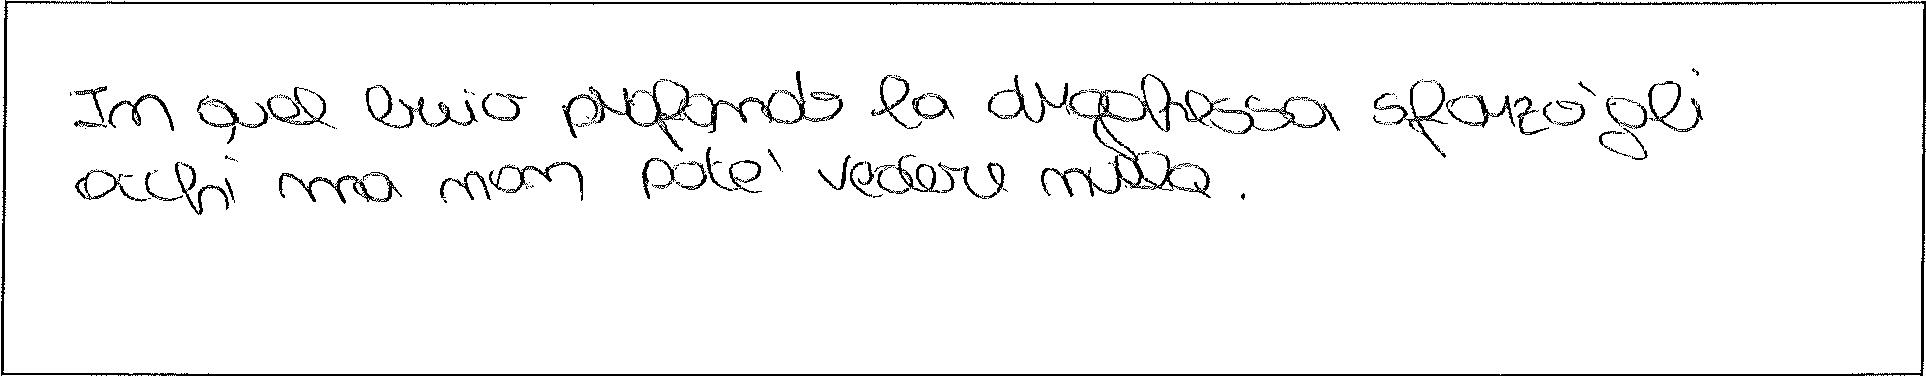 In quel buio profondo la dragohessa sforzò gli
occhi ma non poté vedere nulla.